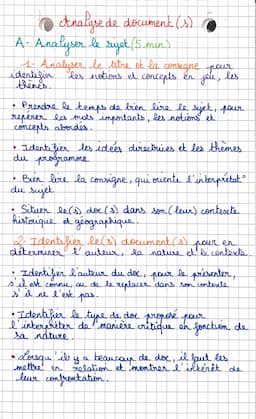 Analyse de document(s)
A- Analyser le sujet (5 min)
1- Analyser le titre et la consigne pour
identifier les notions et concepts en jeu, les
thèmes.
• Prendre le temps de bien lire le sujet, pour
repérer les mots importants, les notions et
concepts abordés.
• Identifier les idées directrices et les thèmes
du programme
• Bien lire la consigne, qui oriente l'interprétat°
du sujet
• Situer le(s) doc(s) dans son (leur) contexte
historique et géographique.
2- Identifier le(s) document(s) pour en
déterminer l'auteur, sa nature et le contexte
• Identifier l'auteur du doc, pour le présenter,
s'il est connu, ou de le replacer dans son contexte
s'il ne l'est pas.
• Identifier le type de doc proposé pour
l'interpréter de manière critique en fonction de
sa nature.
• Lorsqu'il y a beaucoup de doc, il faut les
mettre en relation et montrer l'intérêt de
leur confrontation.